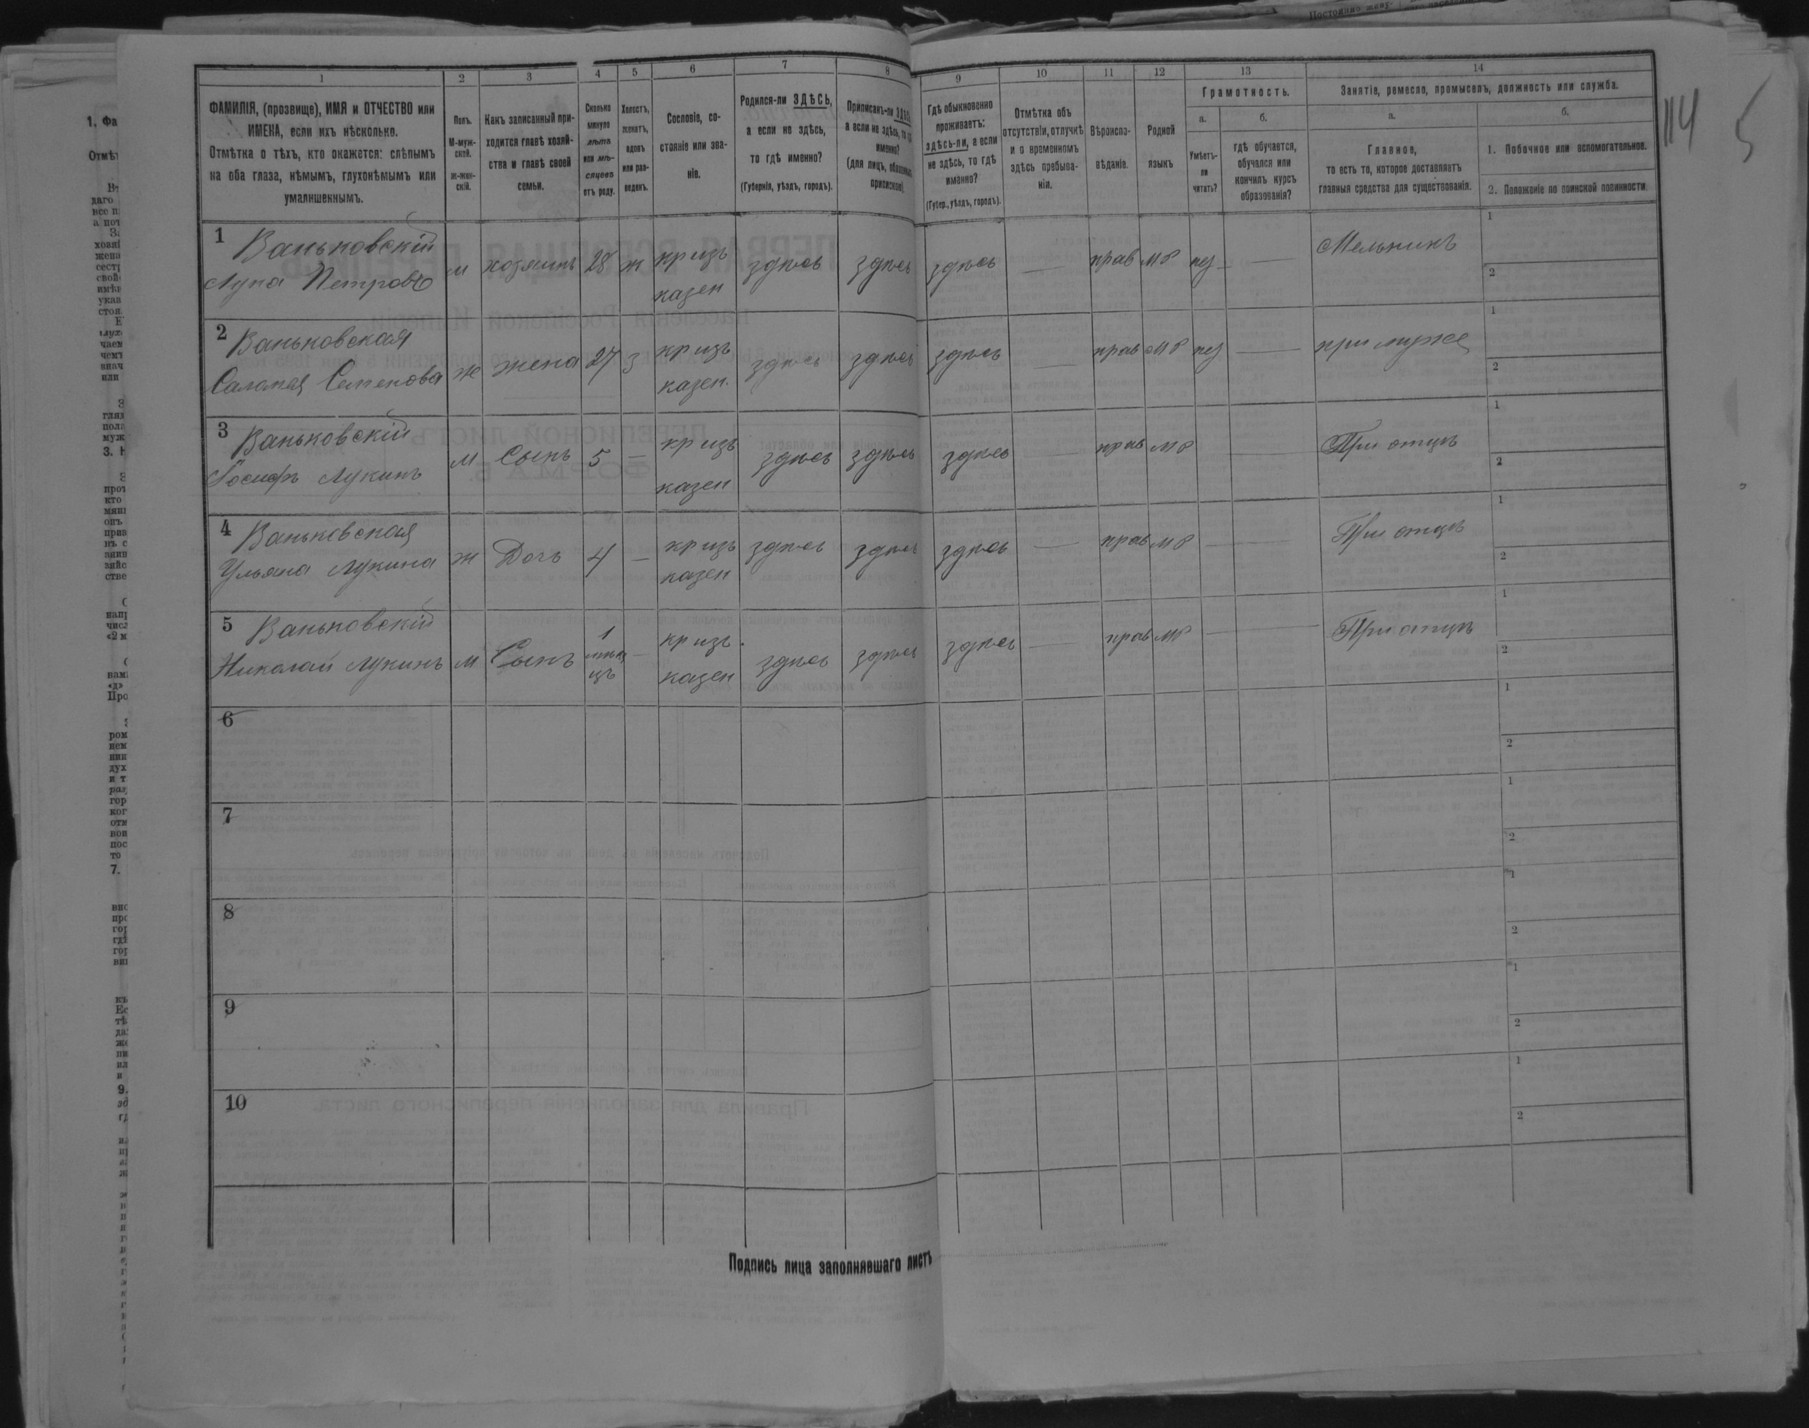 1 2 3 4 5 6 7 8 9 10 11 12 13 14
ФАМИЛІЯ, (прозвище), ИМЯ и ОТЧЕСТВО или
ИМЕНА, если ихъ нѣсколько.
Отмѣтка о тѣхъ, кто окажется: слѣпымъ
на оба глаза, нѣмымъ, глухонѣмымъ или
умалишеннымъ.
Полъ.
М-муж-
ской.
ж-жен-
скій.
Какъ записанный при-
ходится главѣ хозяй-
ства и главѣ своей
семьи.
Сколько
минуло
лѣтъ
или мѣ-
сяцевъ
отъ роду.
Холостъ,
женатъ,
вдовъ
или раз-
веденъ.
Сословіе, со-
стояніе или зва-
ніе.
Родился-ли ЗДѢСЬ,
а если не здѣсь,
то гдѣ именно?
(Губернія, уѣздъ, городъ).
Приписанъ-ли
а если не здѣсь, то
именно?
(для лицъ,
Гдѣ обыкновенно
проживаетъ:
здѣсь-ли, а если
не здѣсь, то гдѣ
именно?
(Губер., уѣздъ, городъ).
Отмѣтка объ
отсутствіи, отлучкѣ
и о временномъ
здѣсь пребыва-
ніи.
Вѣроиспо-
вѣданіе.
Родной
языкъ
Грамотность.
а. б.
Умѣетъ-
ли
читать?
гдѣ обучается,
обучался или
кончилъ курсъ
образованія?
Занятіе, ремесло, промыселъ, должность или служба.
а. б.
Главное,
то есть то, которое доставляетъ
главныя средства для существованія.
1. Побочное или вспомогательное.
2. Положеніе по воинской повинности.
114
1 Ваньковскій
Лука Петровъ м хозяинъ 28 ж кр изъ казен здѣсь здѣсь здѣсь — прав мр нѣ — Мельникъ
1
2
2 Ваньковская
Саломея Семенова ж жена 27 з кр изъ казен. здѣсь здѣсь здѣсь — прав мр — при мужѣ
1
2
3 Ваньковскій
Іосифъ Лукинъ м Сынъ 5 — кр изъ казен здѣсь здѣсь здѣсь — прав мр При отцѣ
1
2
4 Ваньковская
Ульяна Лукина ж Дочь 4 — кр изъ казен здѣсь здѣсь здѣсь — прав мр — При отцѣ
1
2
5 Ваньковскій
Николай Лукинъ м Сынъ 1 мѣсяцъ — кр изъ казен здѣсь здѣсь здѣсь — прав мр — При отцѣ
1
2
6
1
2
7
1
2
8
1
2
9
1
2
10
1
2
Подпись лица заполнявшаго листъ